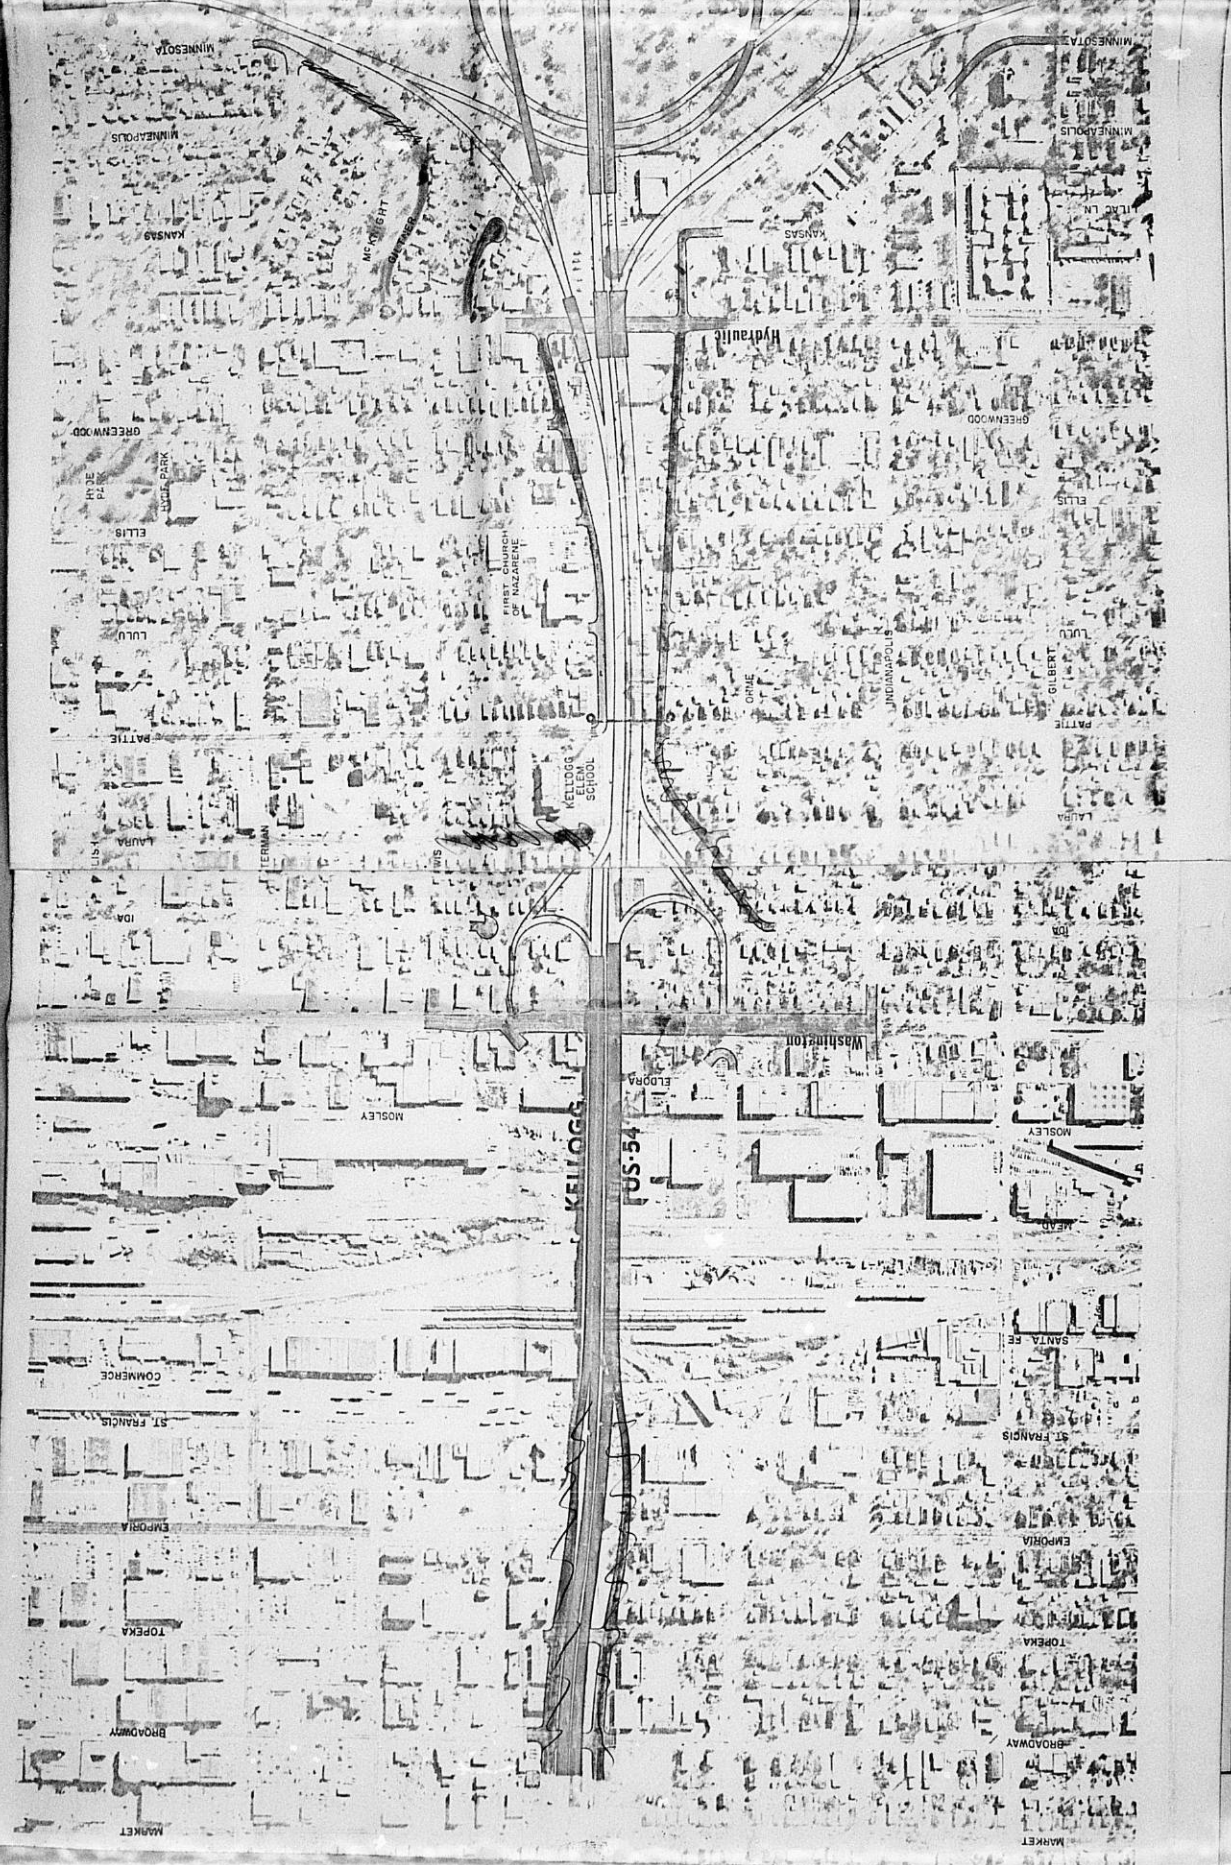 MINNESOTA
MINNESOTA
MINNEAPOLIS
MINNEAPOLIS
KANSAS
McKNIGHT
KANSAS
LILAC LN
Hydraulic
GREENWOOD
GREENWOOD
HYDE
PARK
HYDE PARK
ELLIS
ELLIS
FIRST CHURCH
OF NAZARENE
LULU
LULU
INDIANAPOLIS
GILBERT
ORME
PATTIE
PATTIE
KELLOGG
ELEM.
SCHOOL
LAURA
LAURA
IDA
IDA
Washington
ELDORA
MOSLEY
MOSLEY
KELLOGG
US-54
MEAD
SANTA FE
COMMERCE
ST. FRANCIS
ST. FRANCIS
EMPORIA
EMPORIA
TOPEKA
TOPEKA
BROADWAY
BROADWAY
MARKET
MARKET